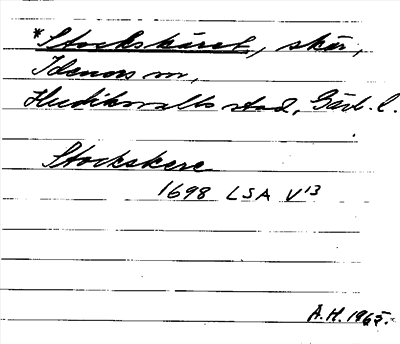 *Stockskäret, skär,
Idenors sn,
Hudiksvalls stad, Gävl. l.
Stockskere
1698 LSA V¹³
A.H. 1965.